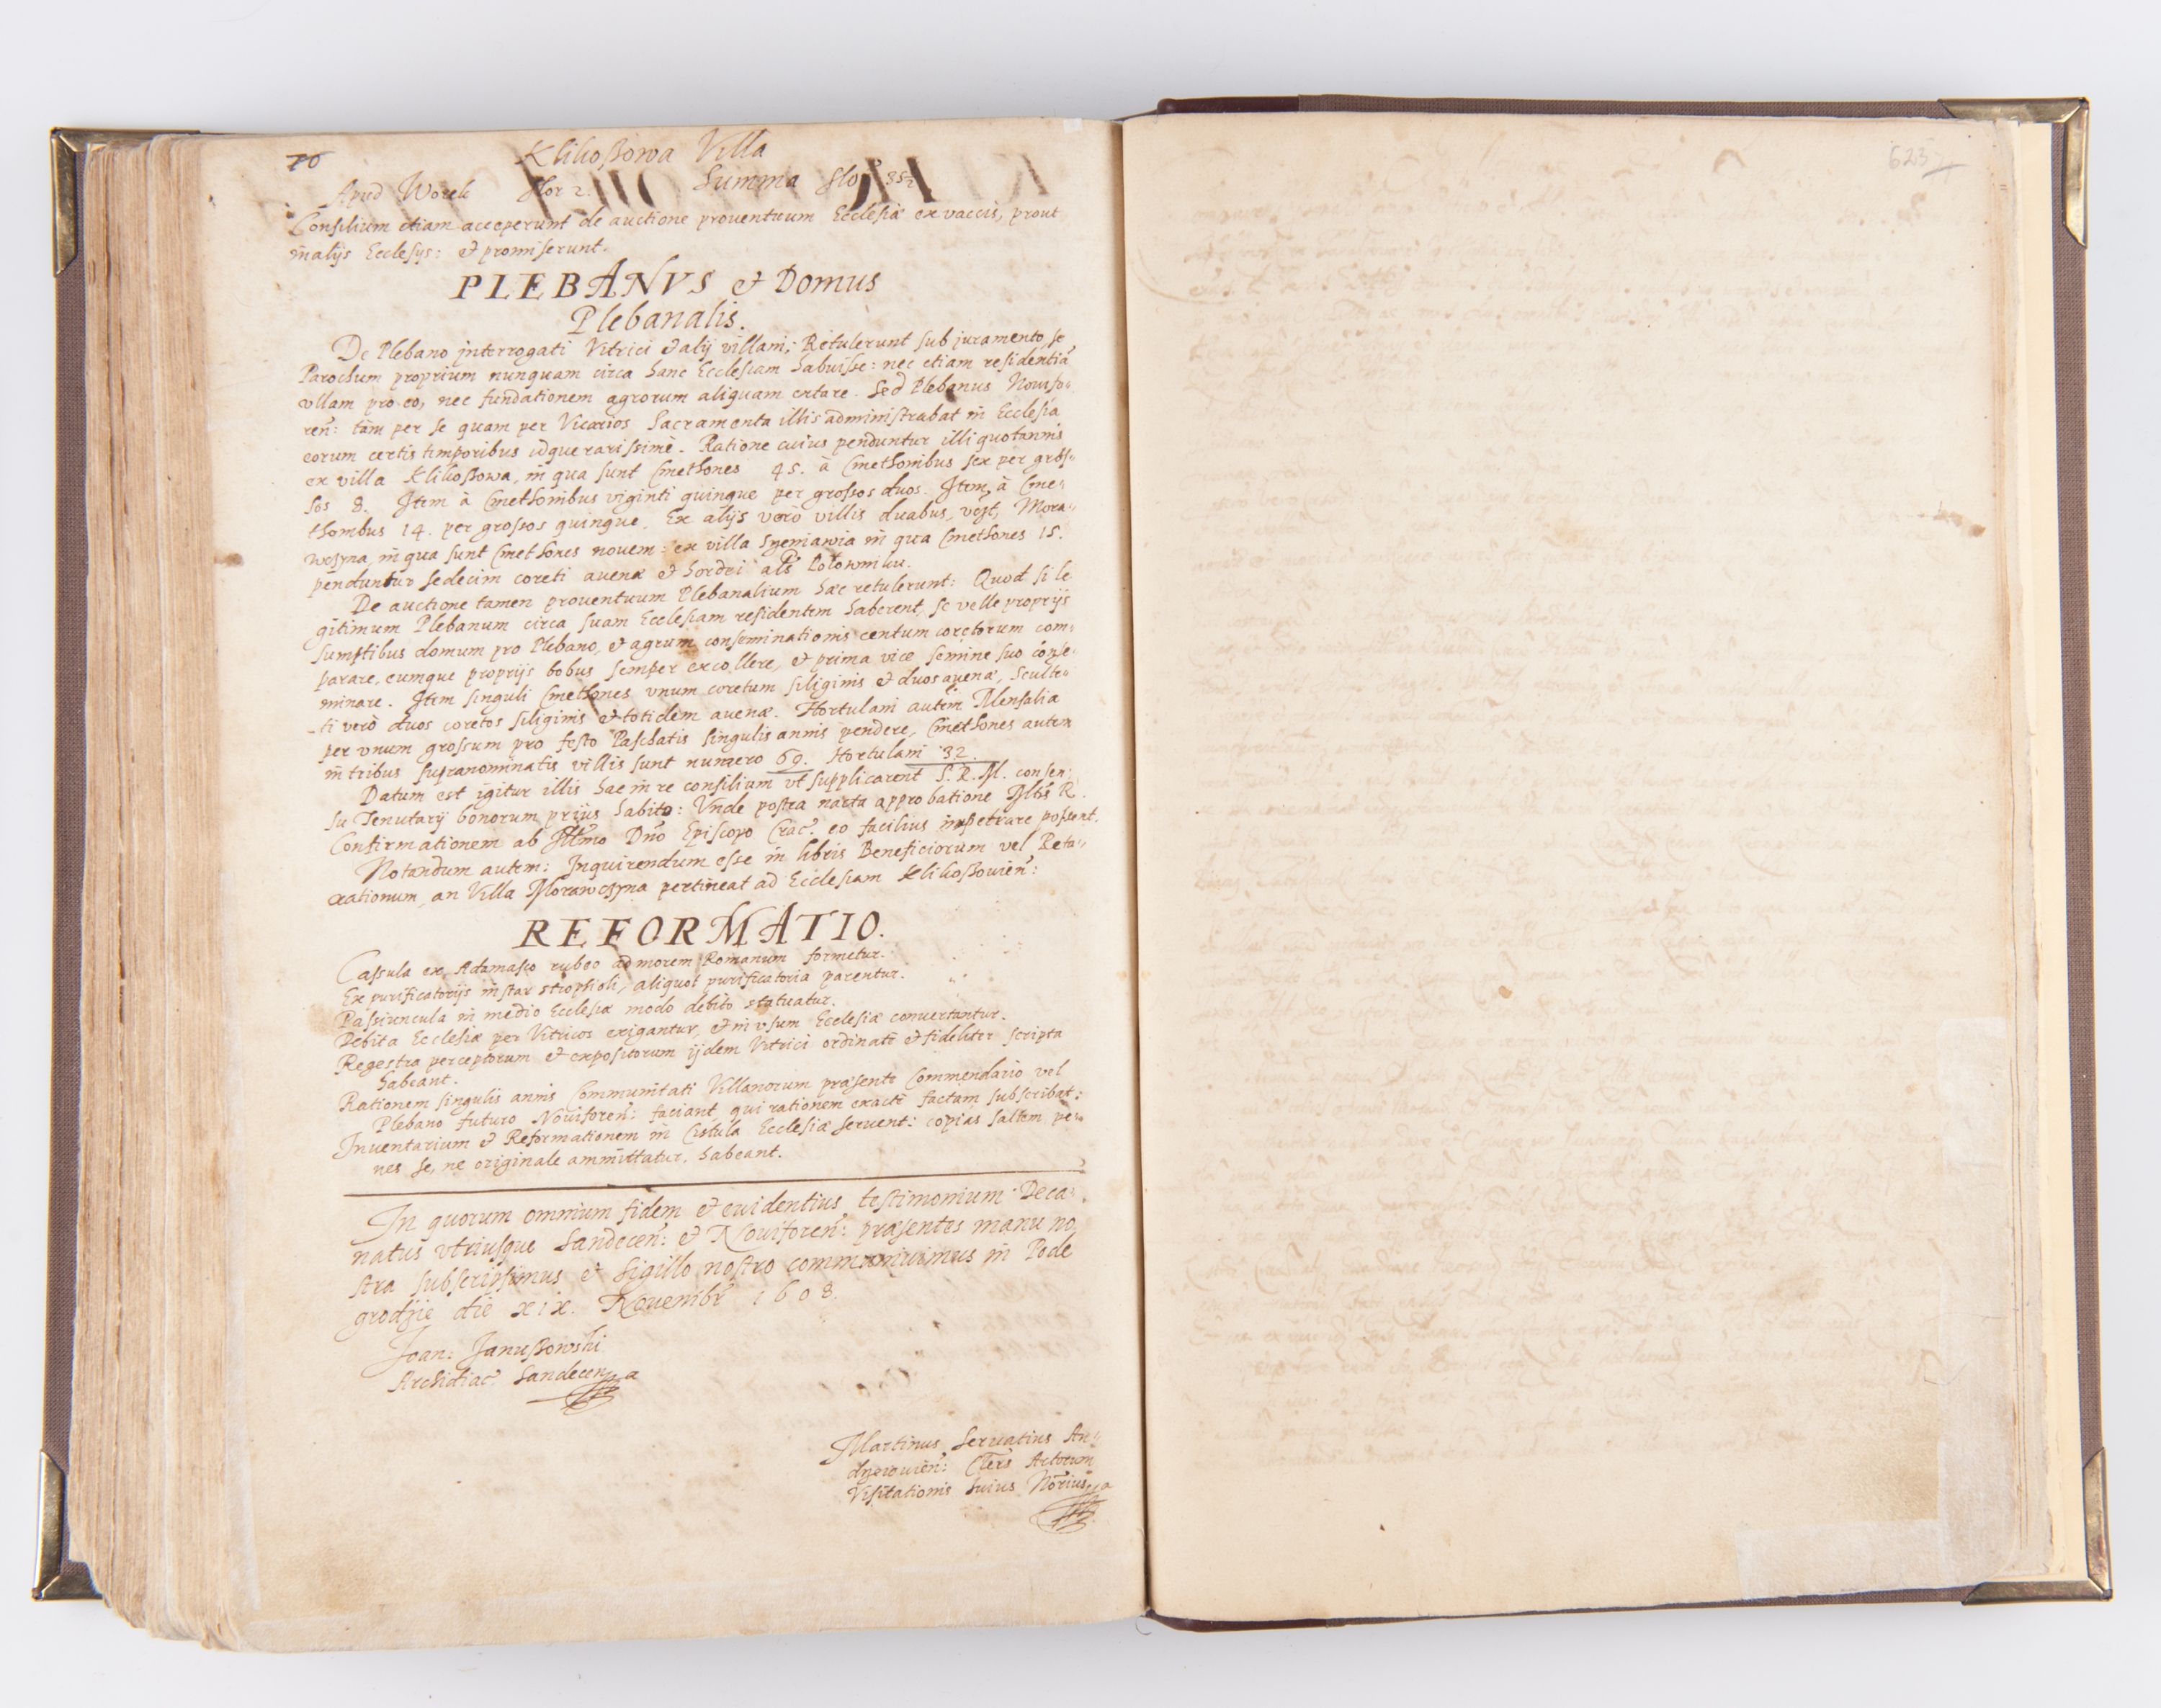 70
Klikoßowa Villa
Apud Worek flor 2. Summa flo 35½
Consilium etiam acceperunt de auctione prouentuum Ecclesiæ ex vaccis, prout
in alijs Ecclesijs: et promiserunt.
PLEBANVS et Domus
Plebanalis.
De Plebano jnterrogati Vitrici et alij villani; Retulerunt sub juramento, se
Parochum proprium nunquam circa hanc Ecclesiam habuisse: nec etiam residentiã
vllam pro eo, nec fundationem agrorum aliquam extare. Sed Plebanus Nouifo-
ren̄: tam per se quam per Vicarios Sacramenta illis administrabat in Ecclesia
eorum certis temporibus idque rarissimè. Ratione cuius penduntur illi quotannis
ex villa Klikoßowa, in qua sunt Cmethones 45. à Cmethonibus sex per gros-
sos 8. Jtem à Cmethonibus viginti quinque per grossos duos. Jtem à Cme-
thonibus 14. per grossos quinque. Ex alijs verò villis duabus, vezt, Mora-
wczyna, in qua sunt Cmethones nouem: ex villa Syeniawia in qua Cmethones 15.
penduntur sedecim coreti auenæ et hordei als Polowniku.
De auctione tamen prouentuum Plebanalium hæc retulerunt: Quod si le
gitimum Plebanum circa suam Ecclesiam residentem haberent, se velle proprijs
sumptibus domum pro Plebano, et agrum conseminationis centum coretorum com-
parare, eumque proprijs bobus semper excollere, et prima vice semine suo conse-
minare. Jtem singuli Cmethones vnum coretum siliginis et duos auenæ, Sculte-
ti verò duos coretos siliginis et totidem auenæ. Hortulani autem Mensalia
per vnum grossum pro festo Paschatis singulis annis pendere, Cmethones autem
in tribus supranominatis villis sunt numero 69. Hortulani 32.
Datum est igitur illis hac in re consilium vt supplicarent S. R. M. consen-
su Tenutarij bonorum prijus habito: Vnde postea nacta approbatione Mtis R.
Confirmationem ab Jllmo Dño Episcopo Crac. eo facilius impetrare possent.
Notandum autem: Jnquirendum esse in libris Beneficiorum vel Reta-
xationum, an Villa Morawczyna pertineat ad Ecclesiam Klikoßouien̄:
REFORMATIO.
Cassula ex Adamasco rubeo ad morem Romanum formetur.
Ex purificatorijs instar strophioli, aliquot purificatoria parentur.
Passiuncula in medio Ecclesiæ modo debito statuatur.
Debita Ecclesiæ per Vitricos exigantur, et in vsum Ecclesiæ conuertantur.
Regestra perceptorum et expositorum ijdem Vitrici ordinatè et fideliter scripta
habeant.
Rationem singulis annis Communitati Villanorum præsente Commendario vel
Plebano futuro Nouiforen̄: faciant, qui rationem exactè factam subscribat:
Jnuentarium et Reformationem in Cistula Ecclesiæ seruent: copias saltem pe-
nes se, ne originale ammittatur, habeant.
Jn quorum omnium fidem et euidentius testimonium Deca-
natus vtriusque Sandecen̄: et Nouiforen̄: præsentes manu no
stra subscripsimus et Sigillo nostro communiuimus in Pode
grodzie die xix. Nouembr 1608.
Joan: Janußowski
Archidiac Sandecen
Martinus Seruatius An-
dreouien̄: Cler̄s Actorum
Visitationis huius Nōrius
623